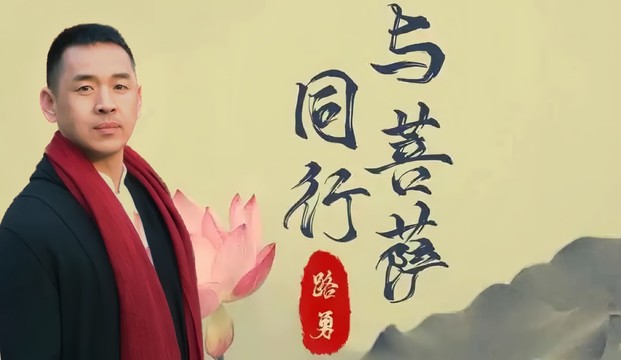 与菩萨
同行
路勇